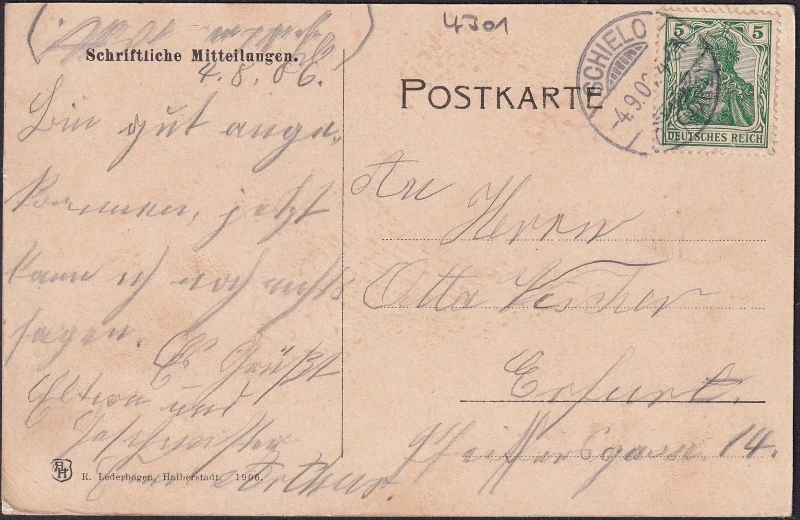 4301
Schriftliche Mitteilungen.
4.8.06.
Bin gut ange-
kommen, jetzt
kann ich noch nichts
sagen.
Es Grüßt
Eltern und
Geschwister
R. Lederbogen, Halberstadt. 1906.
POSTKARTE
SCHIELO
-4.9.0
5 5
DEUTSCHES REICH
An Herrn
Otto Fischer
Erfurt.
14.